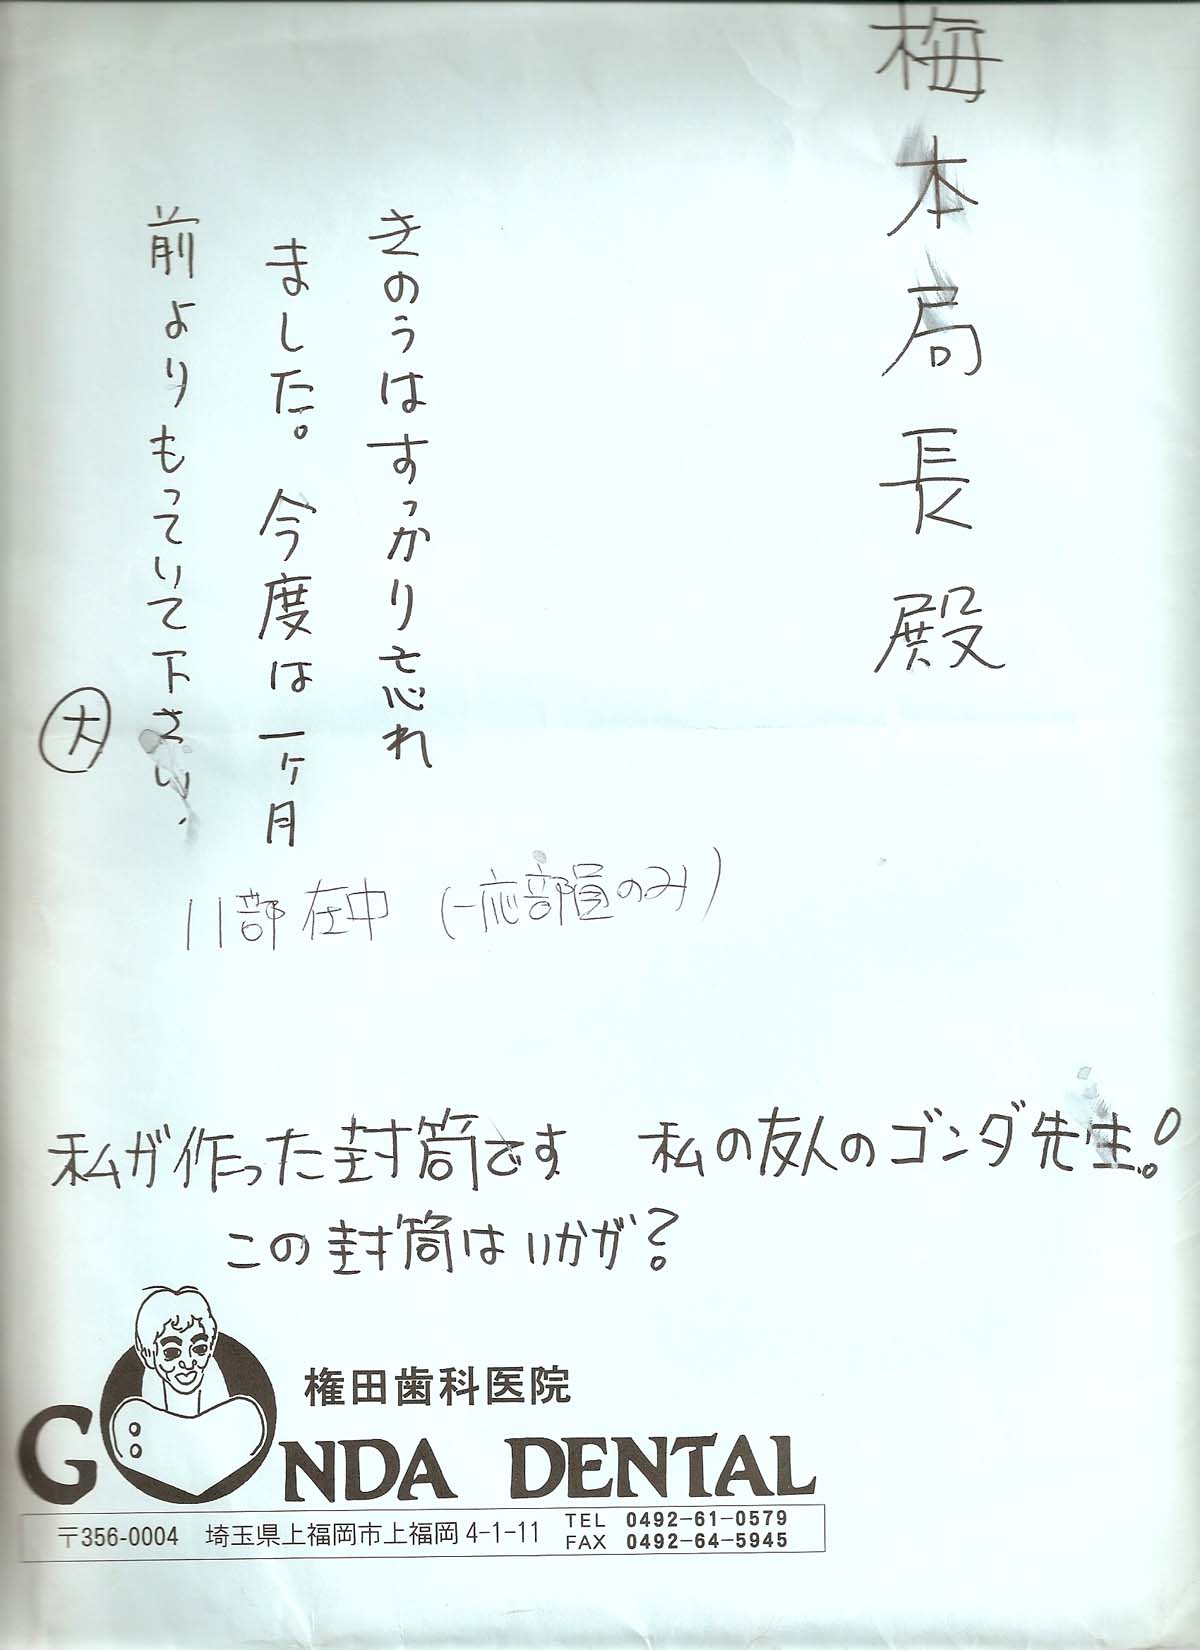 梅本局長殿
きのうはすっかり忘れ
ました。今度は一ヶ月
前よりもっていて下さい、
大
11部在中 (一応部員のみ)
私が作った封筒です 私の友人のゴンダ先生!
この封筒はいかが?
権田歯科医院
GONDA DENTAL
〒356-0004 埼玉県上福岡市上福岡4-1-11 TEL 0492-61-0579
FAX 0492-64-5945